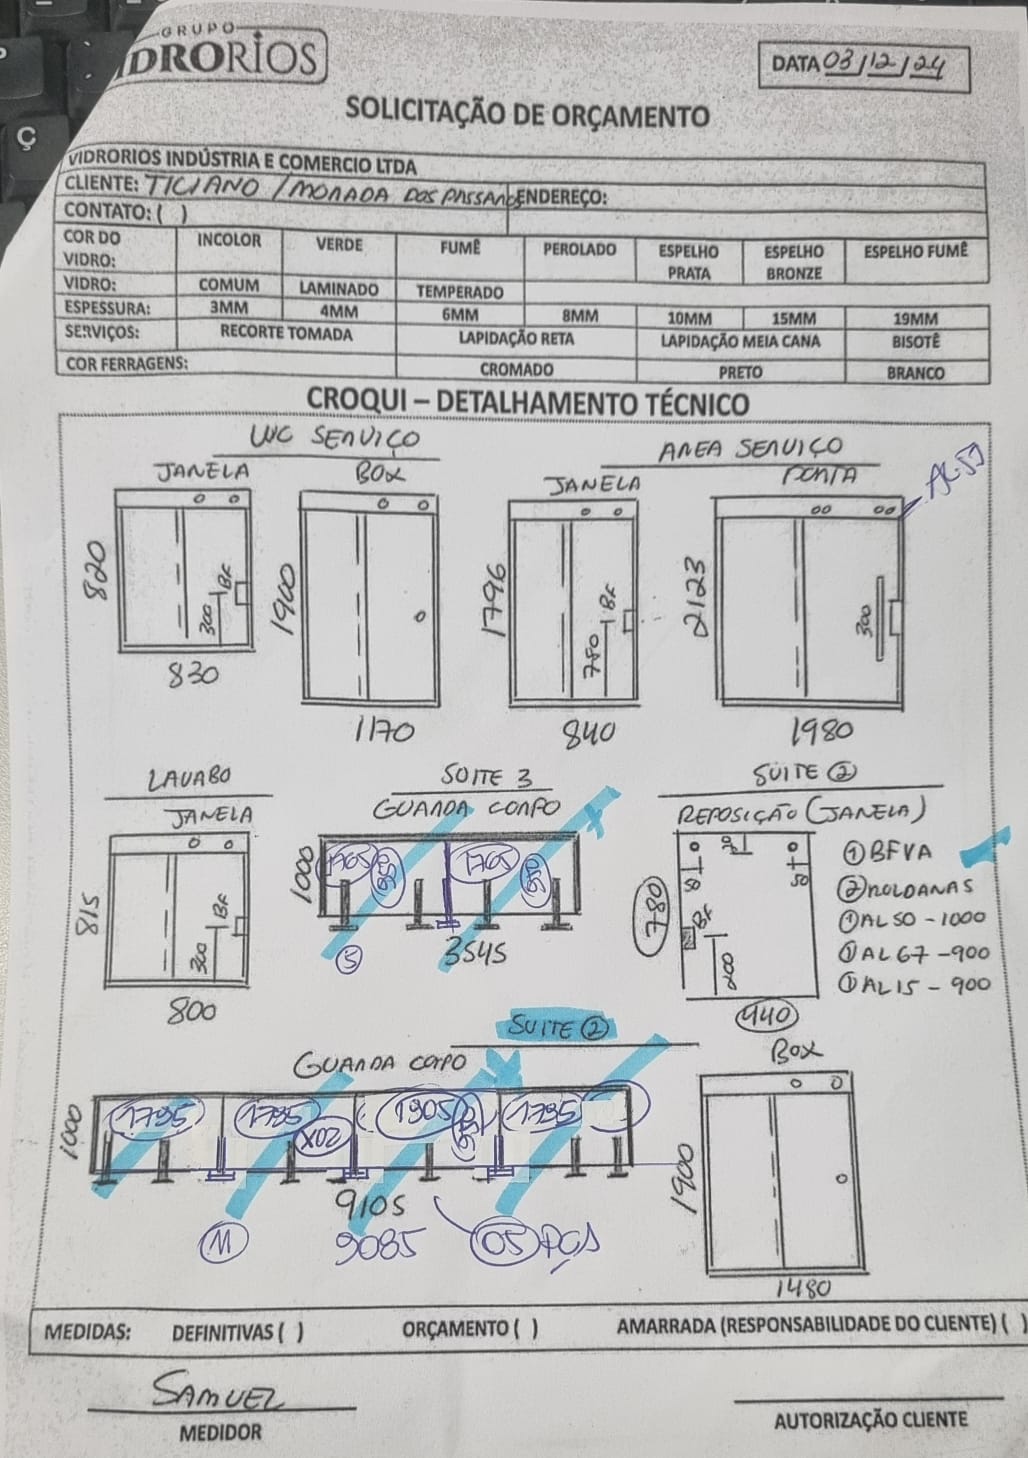 GRUPO
DRORIOS
DATA 03/12/24
SOLICITAÇÃO DE ORÇAMENTO
VIDRORIOS INDÚSTRIA E COMERCIO LTDA
CLIENTE: TICIANO / MORADA DOS PASSAROS ENDEREÇO:
CONTATO: ( )
COR DO VIDRO: INCOLOR VERDE FUMÊ PEROLADO ESPELHO PRATA ESPELHO BRONZE ESPELHO FUMÊ
VIDRO: COMUM LAMINADO TEMPERADO
ESPESSURA: 3MM 4MM 6MM 8MM 10MM 15MM 19MM
SERVIÇOS: RECORTE TOMADA LAPIDAÇÃO RETA LAPIDAÇÃO MEIA CANA BISOTÊ
COR FERRAGENS: CROMADO PRETO BRANCO
CROQUI – DETALHAMENTO TÉCNICO
WC SERVIÇO
JANELA
820
300
BF
830
BOX
1900
1170
AREA SERVIÇO
JANELA
1796
780
BF
840
PORTA
2123
300
1980
LAVABO
JANELA
815
300
BF
800
SUITE 3
GUARDA CORPO
1000
1765
1765
5
3545
SUITE 2
REPOSIÇÃO (JANELA)
50
50
780
BF
200
440
1 BFVA
2 ROLDANAS
1 AL 50 - 1000
1 AL 67 - 900
1 AL 15 - 900
SUITE 2
GUARDA CORPO
1000
1795
1795
02X
1905
1795
9105
11
9085
05 PÇS
BOX
1900
1480
MEDIDAS: DEFINITIVAS ( ) ORÇAMENTO ( ) AMARRADA (RESPONSABILIDADE DO CLIENTE) ( )
SAMUEL
MEDIDOR
AUTORIZAÇÃO CLIENTE
Ç